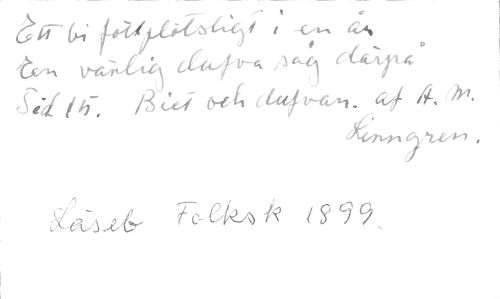 Ett bi föll plötsligt i en år
Een vänlig dufva såg därpå
Sid 15. Biet och dufvan. af A. M.
Linngren.
Läseb Folksk 1899.